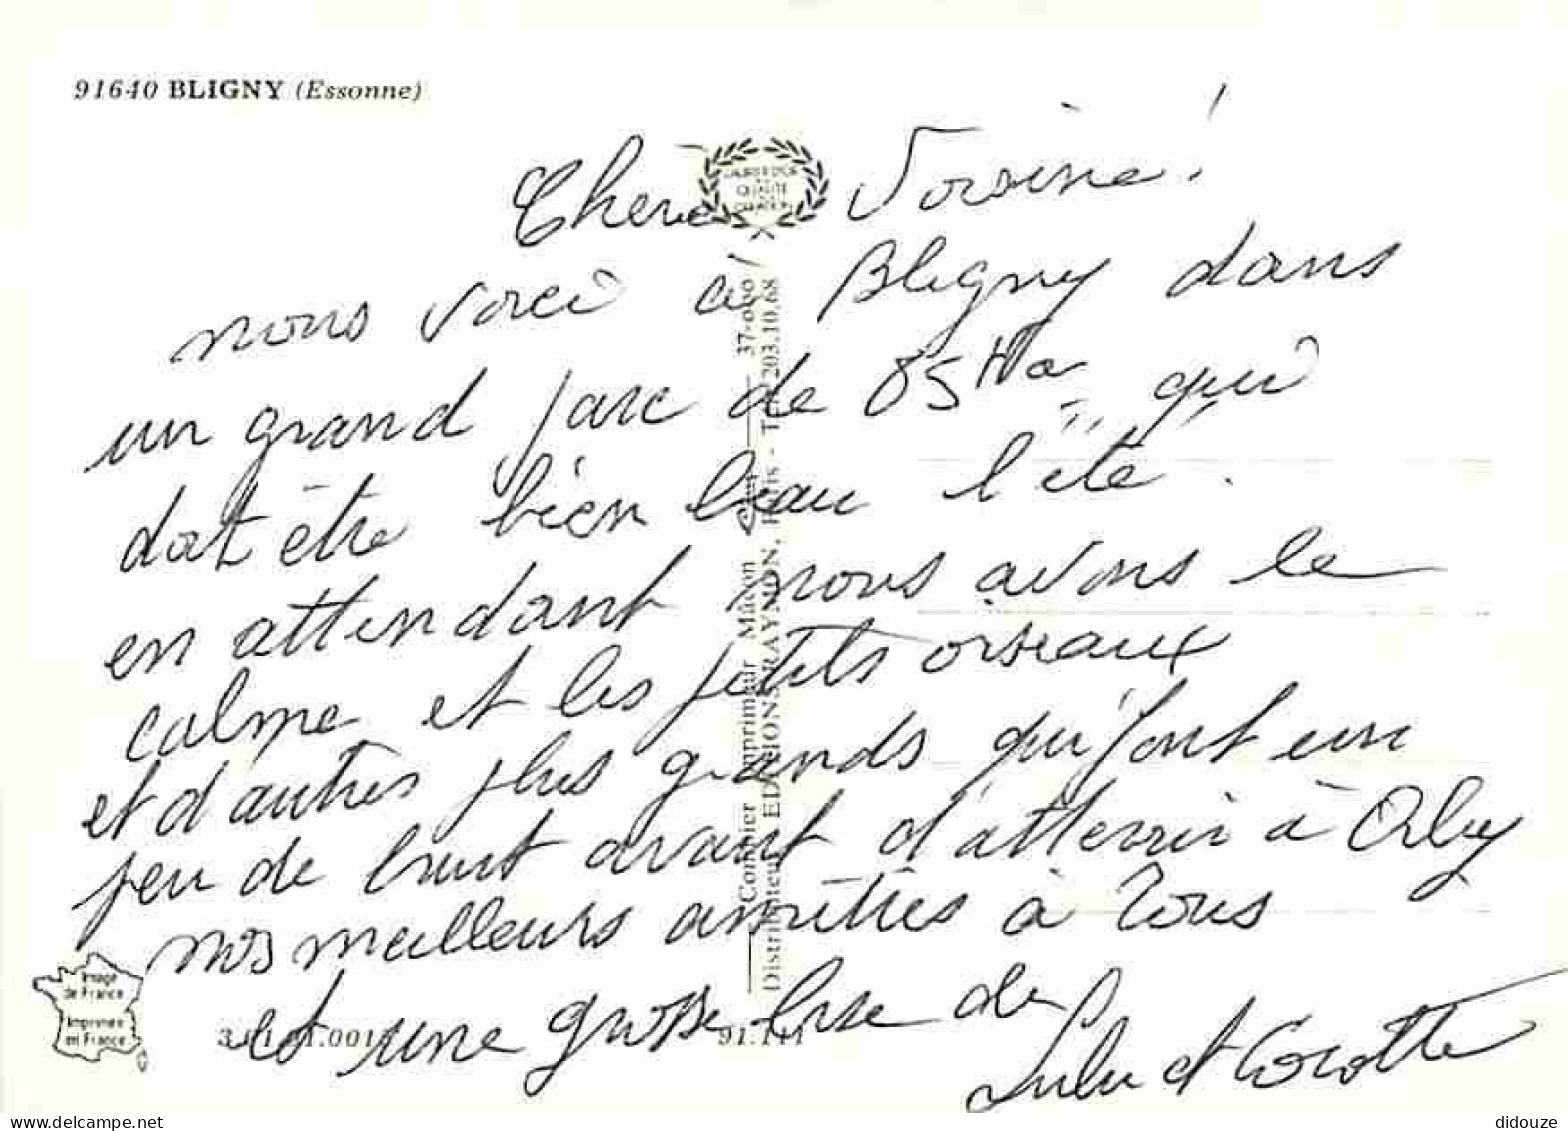 91640 BLIGNY (Essonne)
Chere Voisine !
nous voici à Bligny dans
un grand parc de 85 Ha qui
doit être bien beau l'été.
en attendant nous avons le
calme et les petits oiseaux
et d'autres plus grands qui font un
peu de bruit avant d'atterrir à Orly
nos meilleurs amitiés à tous
et une grosse bise de
Lulu et Cocotte
QUALITÉ
Combier Imprimeur Mâcon
37-030
Distributeur EDITIONS RAYMON, Paris - 203.10.68
Image
de France
Imprimée
en France
91.111
www.delcampe.net
didouze